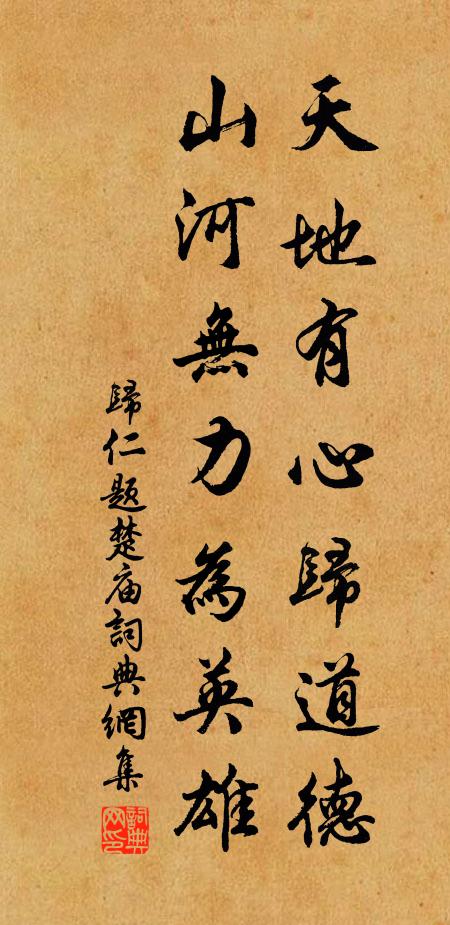 天地有心歸道德
山河無力為英雄
歸仁題楚庙詞典網集
詞典网印